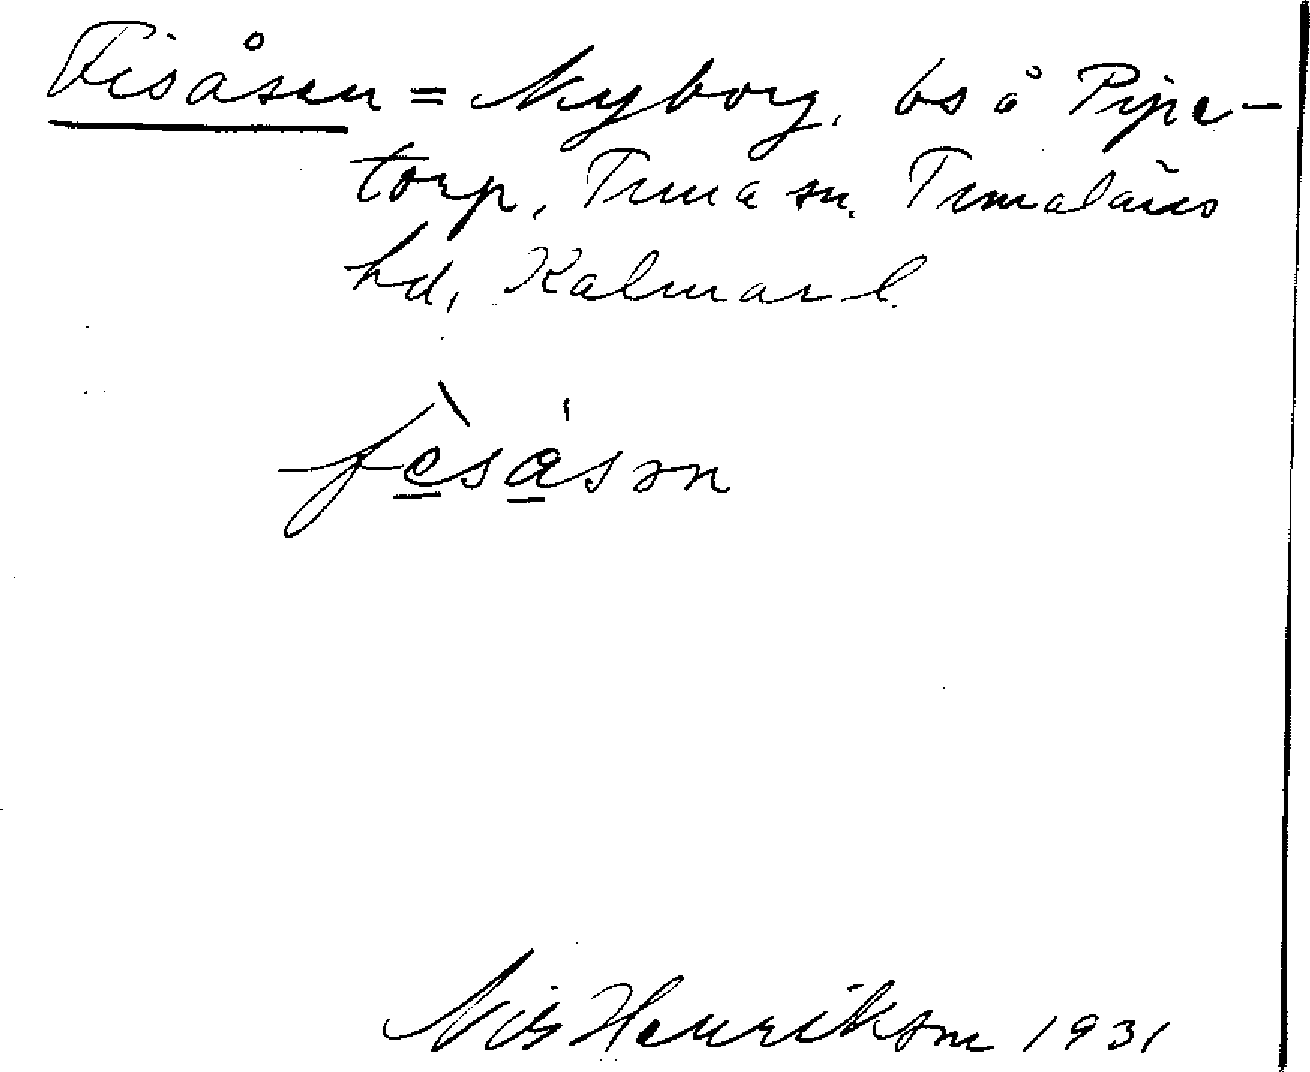 Fisåsen = Nyborg, bs å Pipe-
torp, Tuna sn. Tunaläns
hd, Kalmar l.
fèsåsən
Nils Henrikson 1931